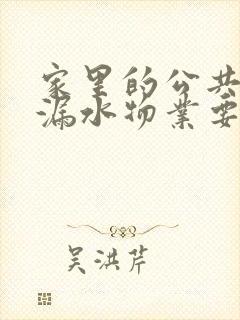 家里的公共
漏水物业要
吴洪芹